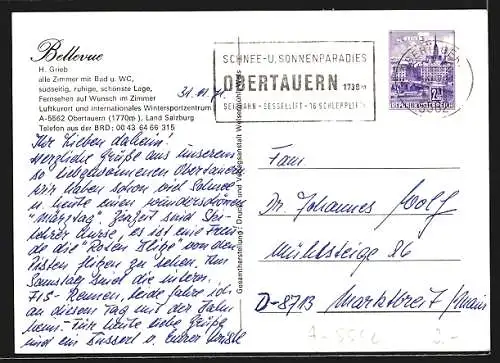 Bellevue
H. Grieb
alle Zimmer mit Bad u. WC,
südseitig, ruhige, schönste Lage,
Fernsehen auf Wunsch im Zimmer
Luftkurort und internationales Wintersportzentrum
A-5562 Obertauern (1770m), Land Salzburg
Telefon aus der BRD: 00 43 64 66 315
SCHNEE-U. SONNENPARADIES
OBERTAUERN 1738m
SEILBAHN - SESSELLIFT - 16 SCHLEPPLIFTE
REPUBLIK ÖSTERREICH
Ihr Lieben daheim!
Herzliche Grüße aus unserem
so liebgewonnenen Obertauern
wir haben schon viel Schnee
u. heute einen wunderschönen
"Märztag". Zurzeit sind Ski-
lehrer Kurse, es ist eine Freu-
de die "Roten Blitze" von den
Pisten flitzen zu sehen. Am
Samstag sind die intern.
FIS-Rennen, beide Jahre ich
an diesem Tag mit der Bahn
heim. Für heute liebe Grüße
und ein Busserl v. Eurer Christl
Gesamtherstellung: Druck- und Verlagsanstalt
Fam
Dr. Johannes Wolf
Mühlsteige 26
D-8713 Marktbreit/Main
A-5562
2.-